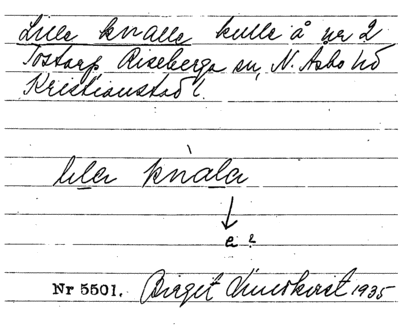 Lille knalle kulle å nr 2
Tostarp Riseberga sn, N. Åsbo hd
Kristianstad l.
lila knala
a?
Nr 5501. Birgit Lindkvist 1935